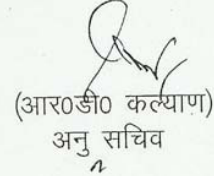 (आर0डी0 कल्याण)
अनु सचिव